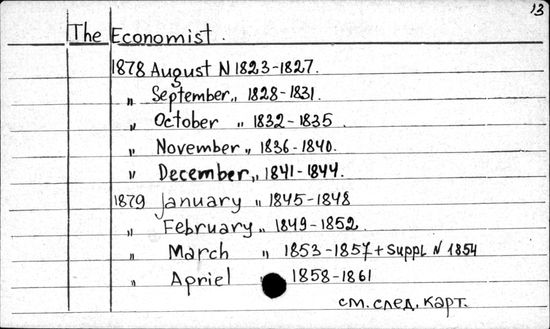 13
The Economist.
1878 August N 1823-1827.
„ September „ 1828-1831.
„ October „ 1832-1835.
„ November „ 1836-1840.
„ December „ 1841-1844.
1879 January „ 1845-1848
„ February „ 1849-1852.
„ March „ 1853-1857 + Suppl. N 1854
„ Apriel „ 1858-1861
см. след. карт.